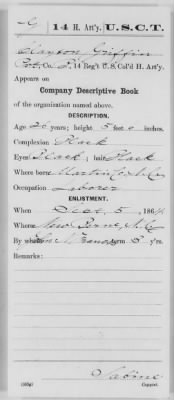 G | 14 H. Art'y. U.S.C.T.
Clayton Griffin
Pvt., Co. , 14 Reg't U.S. Col'd H. Art'y.
Appears on
Company Descriptive Book
of the organization named above.
DESCRIPTION.
Age 26 years; height 5 feet inches.
Complexion Black
Eyes Black; hair Black
Where born Martin Co. N.C.
Occupation Laborer
ENLISTMENT.
When Sept. 5, 1864
Where New Berne, N.C.
By whom term 3 y'rs.
Remarks:
Sabine
Copyist.